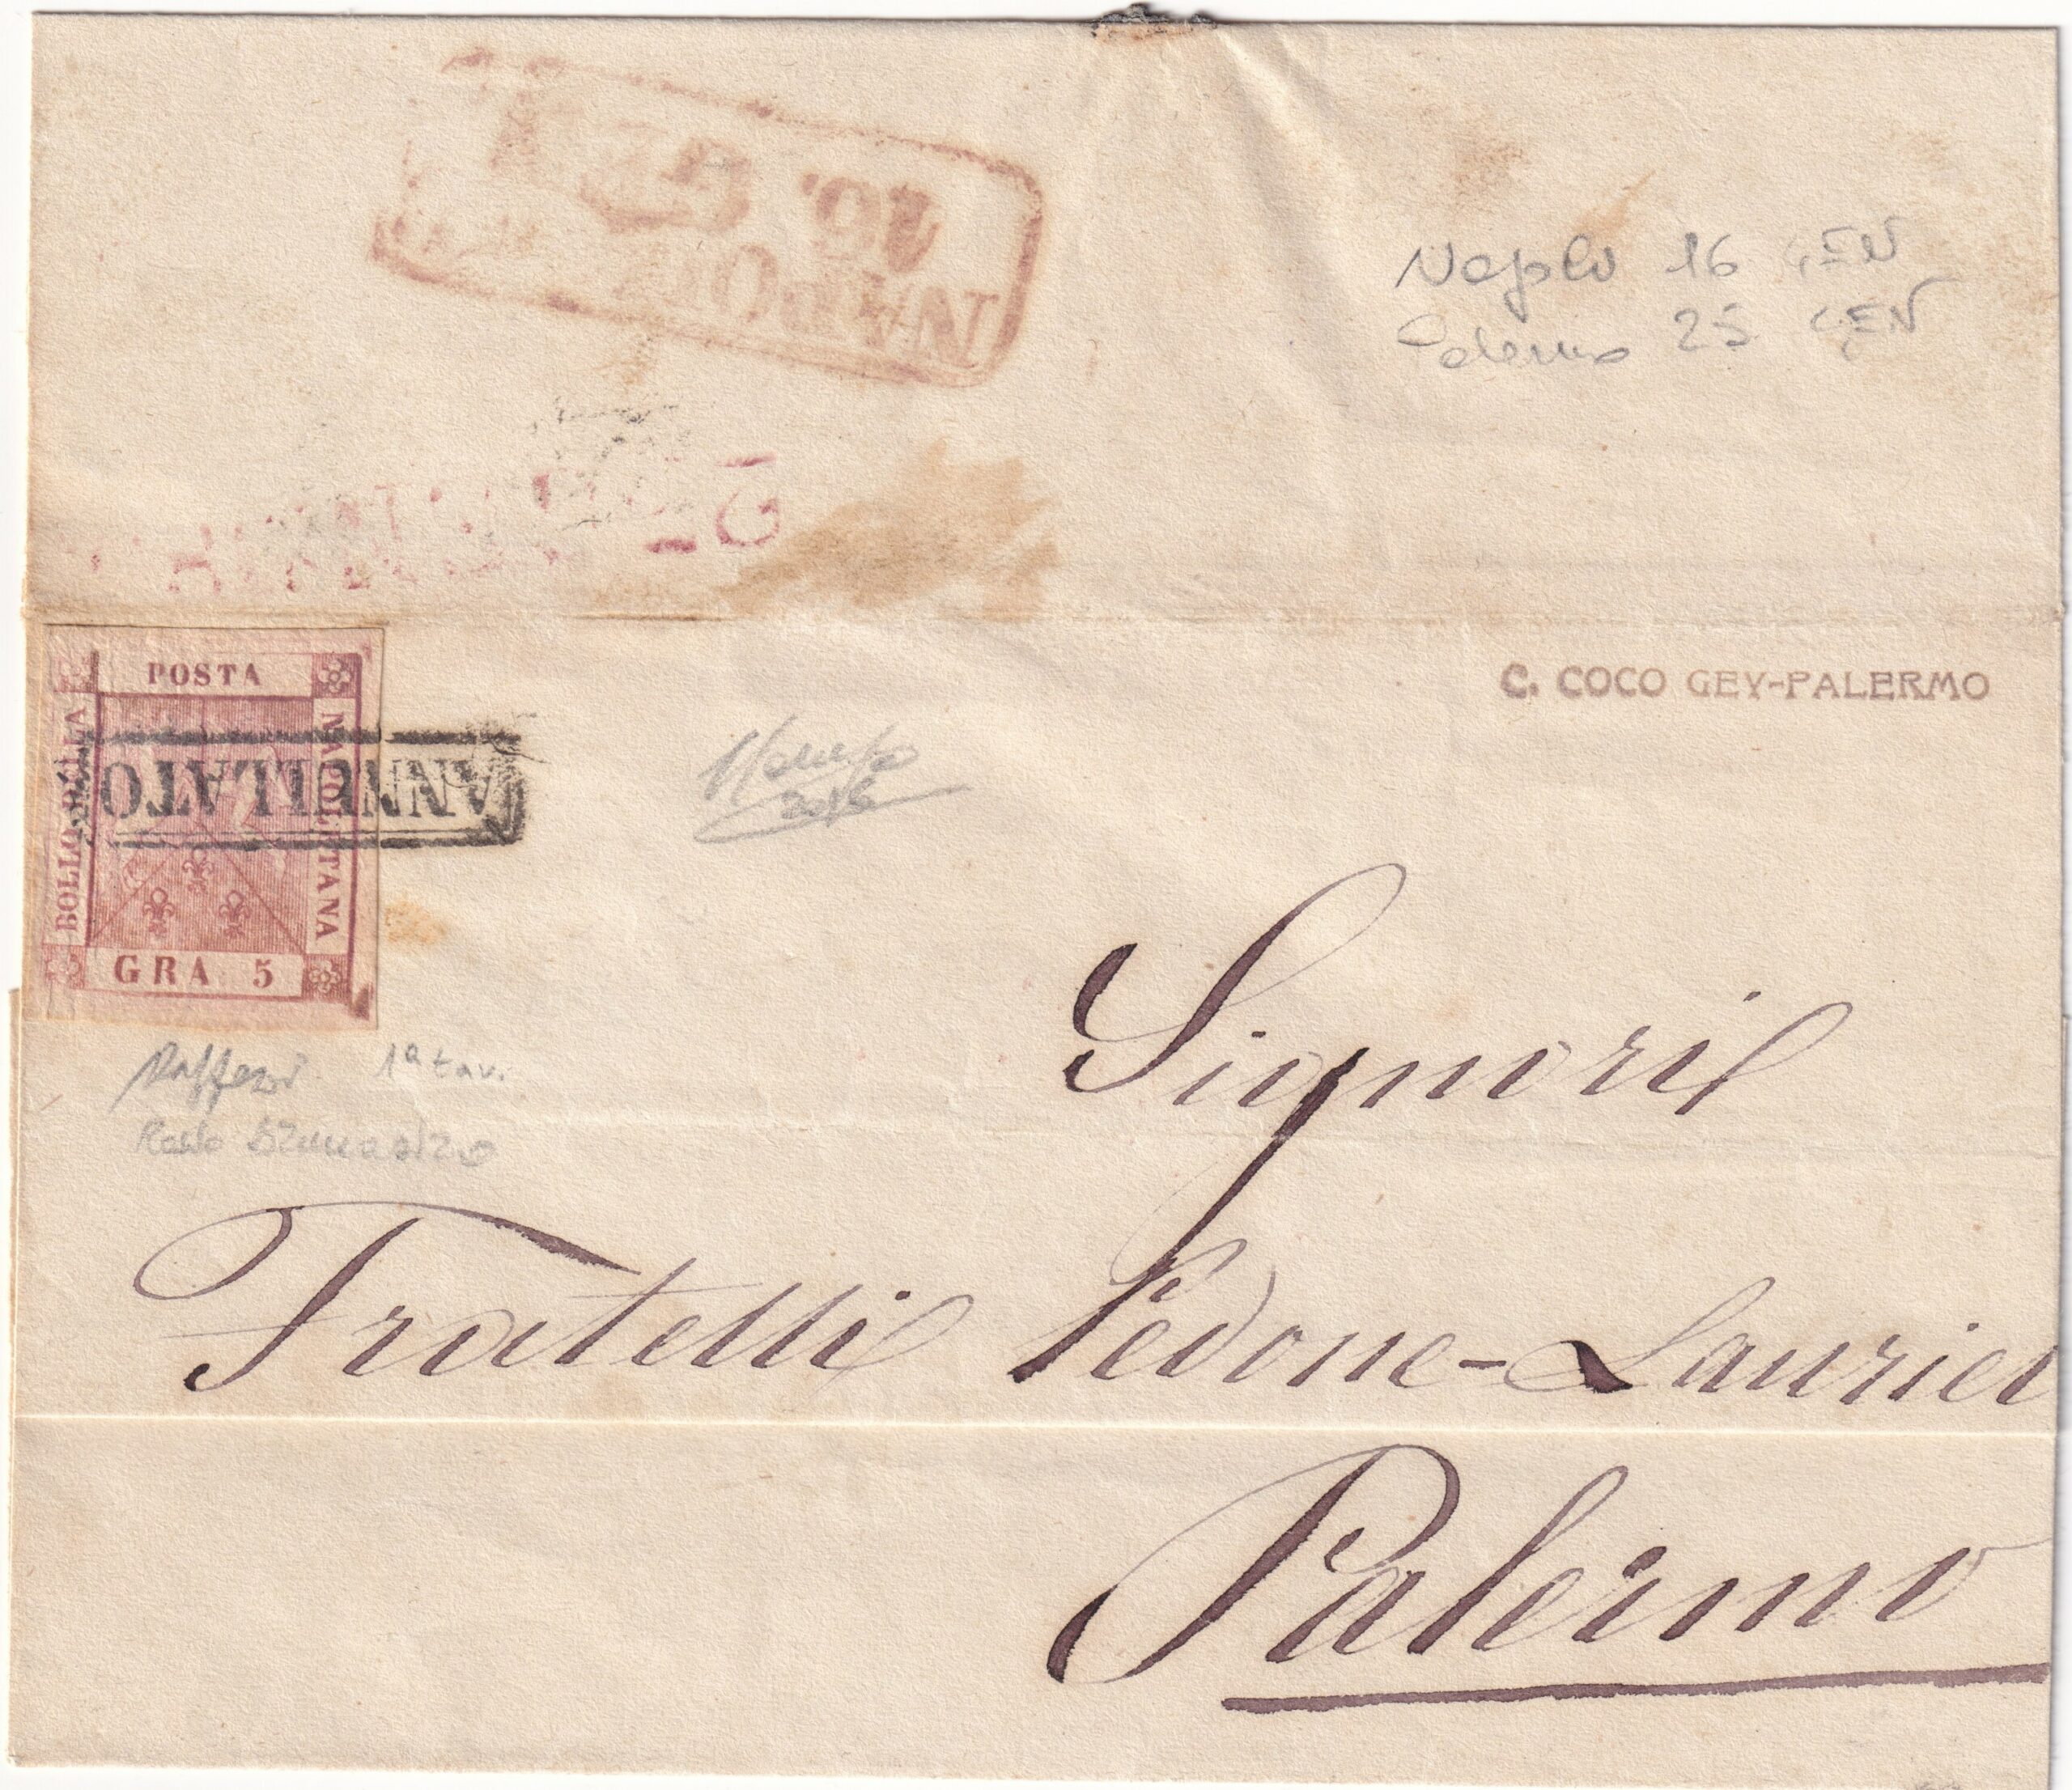 NAPOLI
16. GEN
Napoli 16 GEN
Palermo 25 GEN
C. COCO GEY-PALERMO
POSTA
NAPOLETANA
BOLLO DELLA
GRA 5
ANNULLATO
2016
1ª tav.
Signori
Fratelli Pedone-Lauriel
Palermo